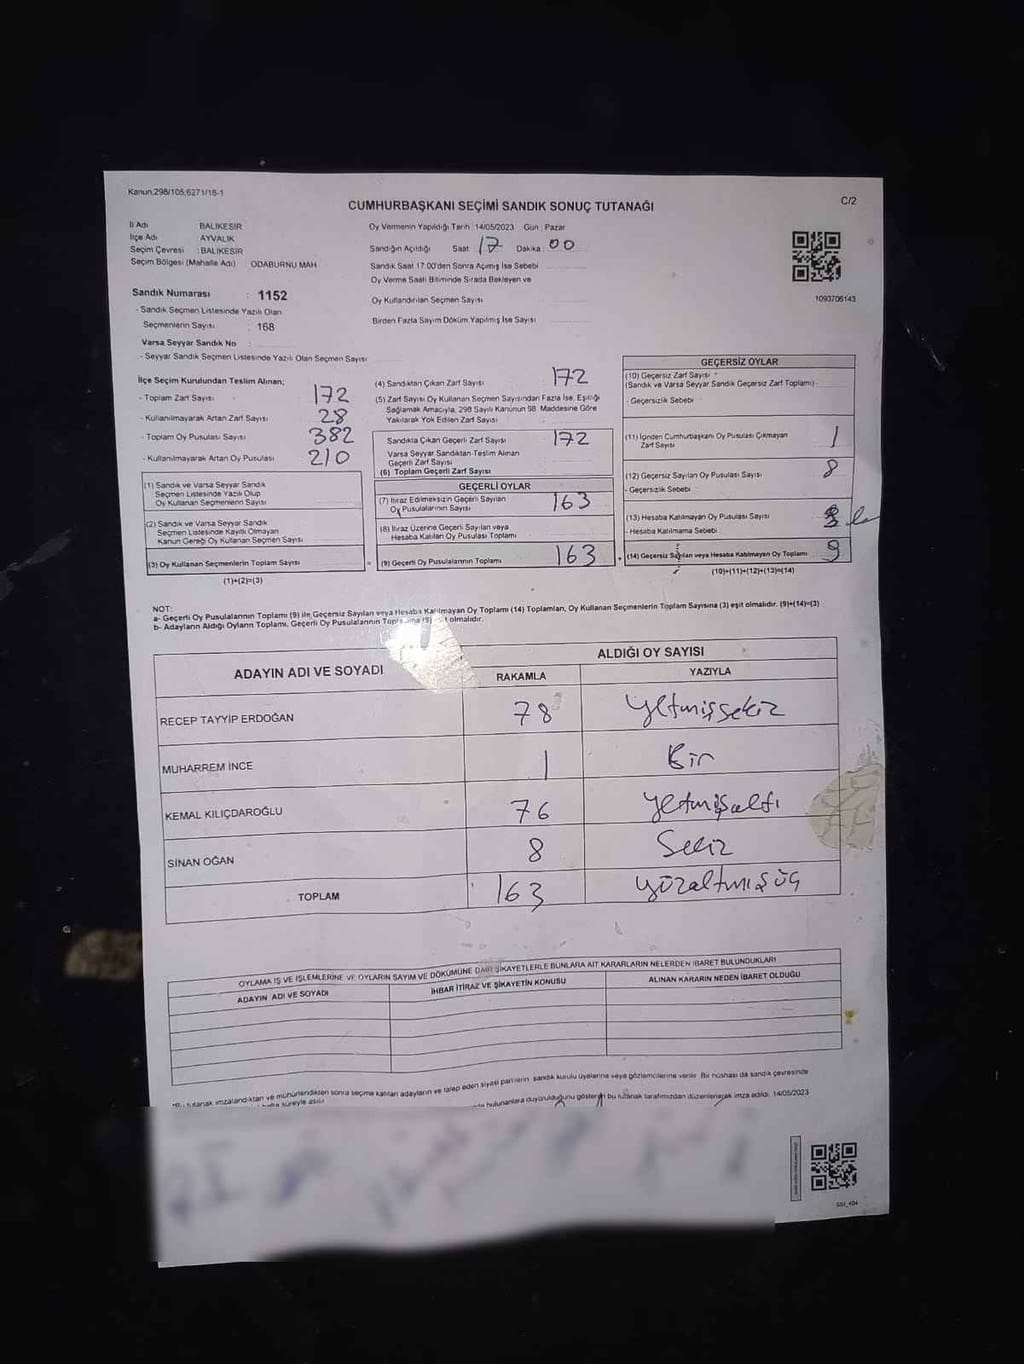 Kanun,298/105,6271/18-1
C/2
CUMHURBAŞKANI SEÇİMİ SANDIK SONUÇ TUTANAĞI
İl Adı BALIKESİR
İlçe Adı AYVALIK
Seçim Çevresi : BALIKESİR
Seçim Bölgesi (Mahalle Adı) ODABURNU MAH
Oy Vermenin Yapıldığı Tarih : 14/05/2023 Gün : Pazar
Sandığın Açıldığı Saat 17 Dakika 00
Sandık Saat 17:00'den Sonra Açımış İse Sebebi
Oy Verme Saati Bitiminde Sırada Bekleyen ve
Oy Kullandırılan Seçmen Sayısı
Birden Fazla Sayım Döküm Yapılmış İse Sayısı
1093706143
Sandık Numarası : 1152
- Sandık Seçmen Listesinde Yazılı Olan
Seçmenlerin Sayısı : 168
Varsa Seyyar Sandık No :
- Seyyar Sandık Seçmen Listesinde Yazılı Olan Seçmen Sayısı
İlçe Seçim Kurulundan Teslim Alınan;
- Toplam Zarf Sayısı 172
- Kullanılmayarak Artan Zarf Sayısı 28
- Toplam Oy Pusulası Sayısı 382
- Kullanılmayarak Artan Oy Pusulası 210
(1) Sandık ve Varsa Seyyar Sandık
Seçmen Listesinde Yazılı Olup
Oy Kullanan Seçmenlerin Sayısı
(2) Sandık ve Varsa Seyyar Sandık
Seçmen Listesinde Kayıtlı Olmayan
Kanun Gereği Oy Kullanan Seçmen Sayısı
(3) Oy Kullanan Seçmenlerin Toplam Sayısı
(1)+(2)=(3)
(4) Sandıktan Çıkan Zarf Sayısı 172
(5) Zarf Sayısı Oy Kullanan Seçmen Sayısından Fazla İse, Eşitliği
Sağlamak Amacıyla, 298 Sayılı Kanunun 98. Maddesine Göre
Yakılarak Yok Edilen Zarf Sayısı
Sandıkta Çıkan Geçerli Zarf Sayısı 172
Varsa Seyyar Sandıktan Teslim Alınan
Geçerli Zarf Sayısı
(6) Toplam Geçerli Zarf Sayısı
GEÇERLİ OYLAR
(7) İtiraz Edilmeksizin Geçerli Sayılan
Oy Pusulalarının Sayısı 163
(8) İtiraz Üzerine Geçerli Sayılan veya
Hesaba Katılan Oy Pusulası Toplamı
(9) Geçerli Oy Pusulalarının Toplamı 163
GEÇERSİZ OYLAR
(10) Geçersiz Zarf Sayısı
(Sandık ve Varsa Seyyar Sandık Geçersiz Zarf Toplamı)
- Geçersizlik Sebebi
(11) İçinden Cumhurbaşkanı Oy Pusulası Çıkmayan
Zarf Sayısı 1
(12) Geçersiz Sayılan Oy Pusulası Sayısı 8
- Geçersizlik Sebebi
(13) Hesaba Katılmayan Oy Pusulası Sayısı
- Hesaba Katılmama Sebebi
(14) Geçersiz Sayılan veya Hesaba Katılmayan Oy Toplamı 9
(10)+(11)+(12)+(13)=(14)
NOT:
a- Geçerli Oy Pusulalarının Toplamı (9) ile Geçersiz Sayılan veya Hesaba Katılmayan Oy Toplamı (14) Toplamları, Oy Kullanan Seçmenlerin Toplam Sayısına (3) eşit olmalıdır. (9)+(14)=(3)
b- Adayların Aldığı Oyların Toplamı, Geçerli Oy Pusulalarının olmalıdır.
ADAYIN ADI VE SOYADI ALDIĞI OY SAYISI
RAKAMLA YAZIYLA
RECEP TAYYİP ERDOĞAN 78 yetmişsekiz
MUHARREM İNCE 1 Bir
KEMAL KILIÇDAROĞLU 76 yetmişaltı
SİNAN OĞAN 8 Sekiz
TOPLAM 163 yüzaltmışüç
OYLAMA İŞ VE İŞLEMLERİNE VE OYLARIN SAYIM VE DÖKÜMÜNE DAİR ŞİKAYETLERLE BUNLARA AİT KARARLARIN NELERDEN İBARET BULUNDUKLARI
ADAYIN ADI VE SOYADI İHBAR İTİRAZ VE ŞİKAYETİN KONUSU ALINAN KARARIN NEDEN İBARET OLDUĞU
tutanak imzalandıktan ve mühürlendikten sonra seçime katılan adayların ve talep eden siyasi partilerin sandık kurulu üyelerine veya gözlemcilerine verilir. Bir nüshası da sandık çevresinde
süreyle asılır. bulunanlara duyurulduğunu gösteren bu tutanak tarafımızdan düzenlenerek imza edildi. 14/05/2023